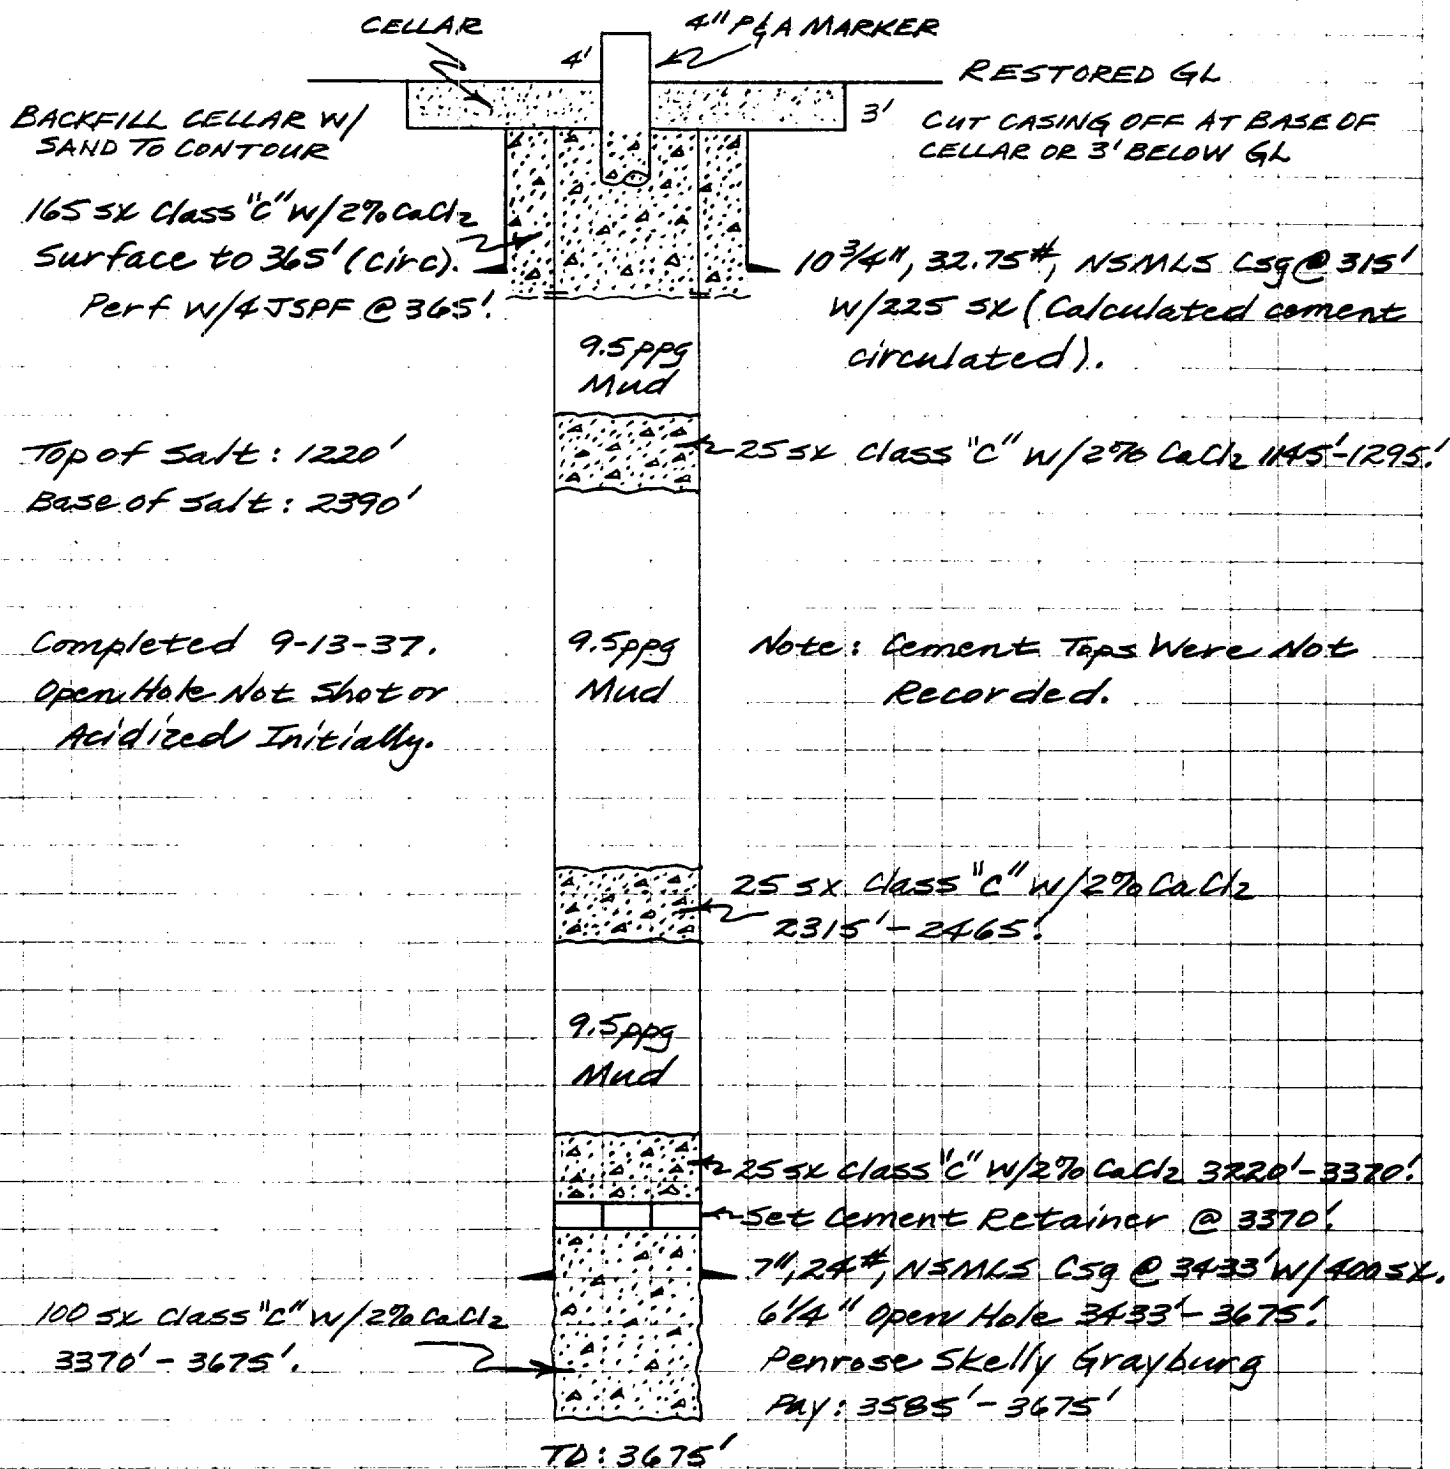 CELLAR
4" P&A MARKER
4'
RESTORED GL
BACKFILL CELLAR W/
SAND TO CONTOUR
3'
CUT CASING OFF AT BASE OF
CELLAR OR 3' BELOW GL
165 sx Class "C" w/2% CaCl2
Surface to 365' (circ).
Perf w/4 JSPF @ 365'.
10 3/4", 32.75#, NSMLS Csg @ 315'
w/225 sx (Calculated cement
circulated).
9.5ppg
Mud
25 sx Class "C" w/2% CaCl2 1145'-1295'.
Top of Salt: 1220'
Base of Salt: 2390'
Completed 9-13-37.
Open Hole Not Shot or
Acidized Initially.
9.5ppg
Mud
Note: Cement Tops Were Not
Recorded.
25 sx Class "C" w/2% CaCl2
2315'-2465'.
9.5ppg
Mud
25 sx Class "C" w/2% CaCl2 3220'-3370'.
Set Cement Retainer @ 3370'.
7", 24#, NSMLS Csg @ 3433' w/400 sx.
6 1/4" Open Hole 3433'-3675'.
Penrose Skelly Grayburg
Pay: 3585'-3675'
100 sx Class "C" w/2% CaCl2
3370'-3675'.
TD: 3675'